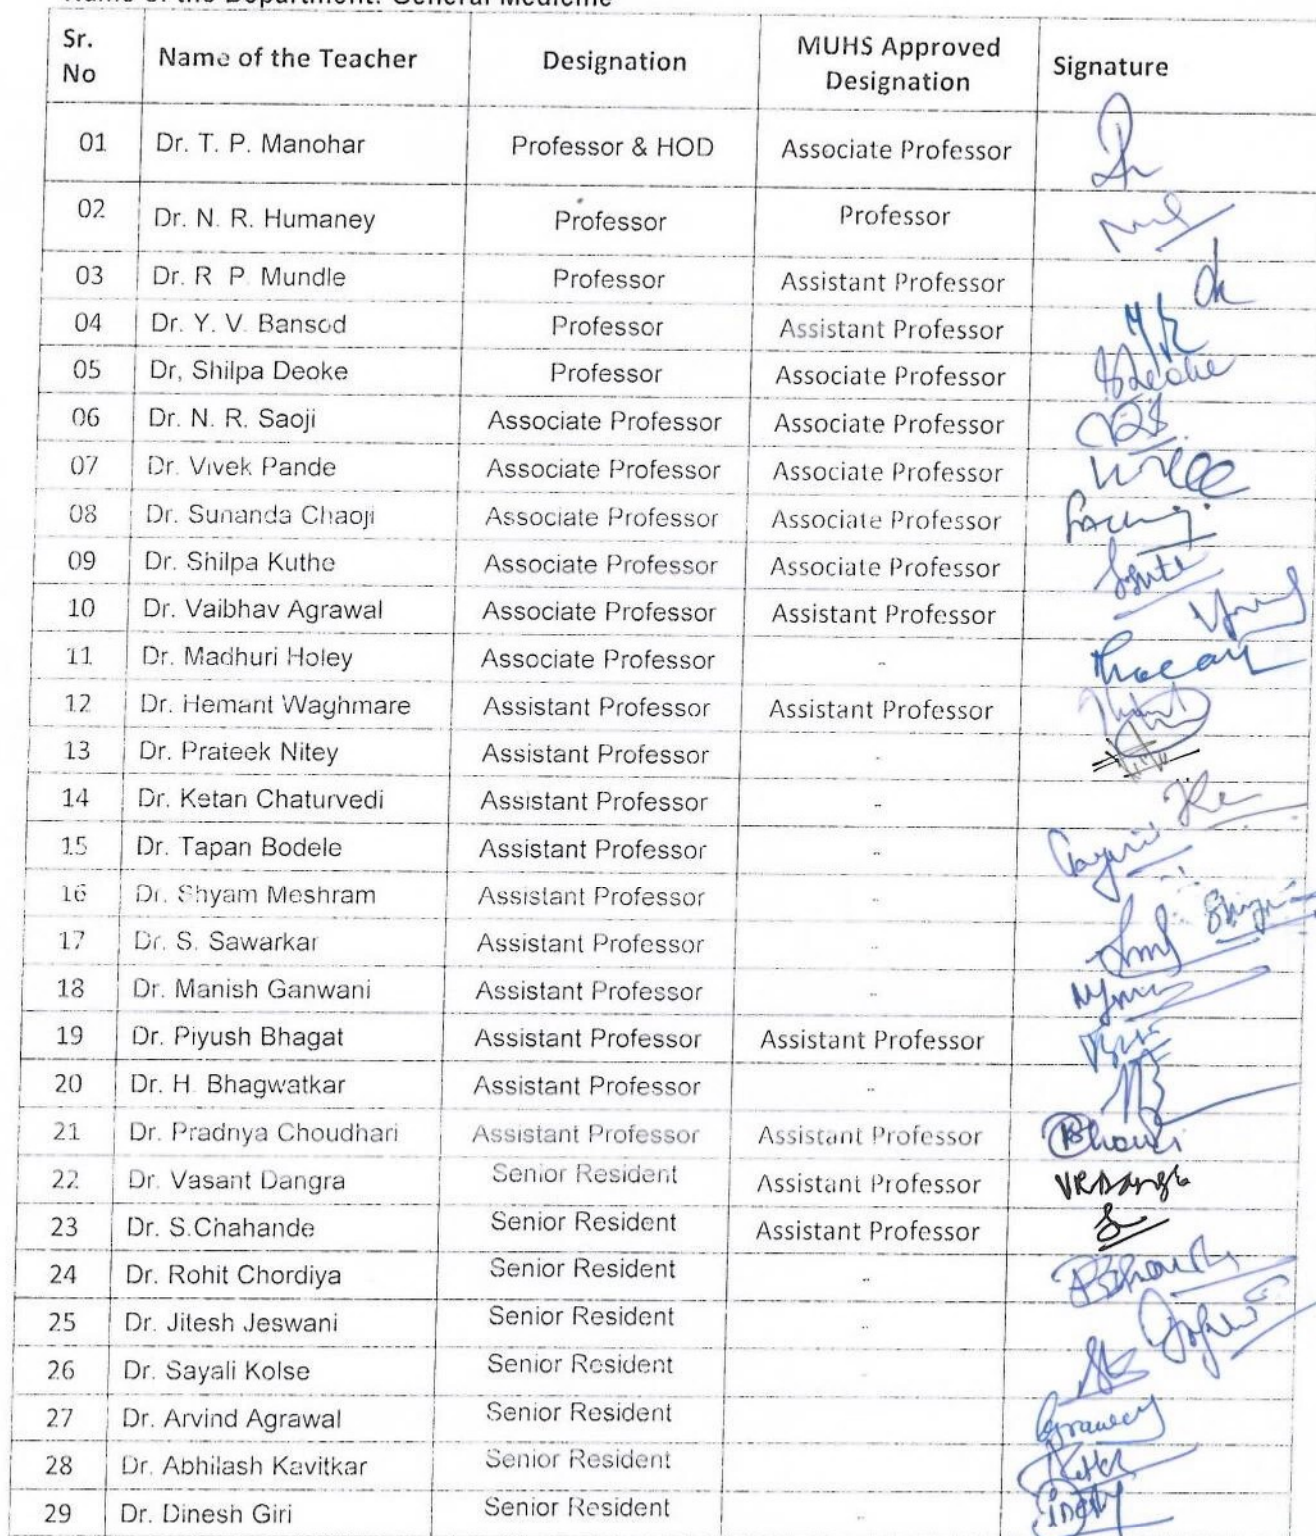 Name of the Department: General Medicine
Sr. No Name of the Teacher Designation MUHS Approved Designation Signature
01 Dr. T. P. Manohar Professor & HOD Associate Professor
02 Dr. N. R. Humaney Professor Professor
03 Dr. R P. Mundle Professor Assistant Professor
04 Dr. Y. V. Bansod Professor Assistant Professor
05 Dr, Shilpa Deoke Professor Associate Professor
06 Dr. N. R. Saoji Associate Professor Associate Professor
07 Dr. Vivek Pande Associate Professor Associate Professor
08 Dr. Sunanda Chaoji Associate Professor Associate Professor
09 Dr. Shilpa Kuthe Associate Professor Associate Professor
10 Dr. Vaibhav Agrawal Associate Professor Assistant Professor
11 Dr. Madhuri Holey Associate Professor -
12 Dr. Hemant Waghmare Assistant Professor Assistant Professor
13 Dr. Prateek Nitey Assistant Professor -
14 Dr. Ketan Chaturvedi Assistant Professor -
15 Dr. Tapan Bodele Assistant Professor --
16 Dr. Shyam Meshram Assistant Professor
17 Dr. S. Sawarkar Assistant Professor --
18 Dr. Manish Ganwani Assistant Professor --
19 Dr. Piyush Bhagat Assistant Professor Assistant Professor
20 Dr. H. Bhagwatkar Assistant Professor --
21 Dr. Pradnya Choudhari Assistant Professor Assistant Professor
22 Dr. Vasant Dangra Senior Resident Assistant Professor
23 Dr. S.Chahande Senior Resident Assistant Professor
24 Dr. Rohit Chordiya Senior Resident --
25 Dr. Jitesh Jeswani Senior Resident --
26 Dr. Sayali Kolse Senior Resident
27 Dr. Arvind Agrawal Senior Resident
28 Dr. Abhilash Kavitkar Senior Resident
29 Dr. Dinesh Giri Senior Resident --